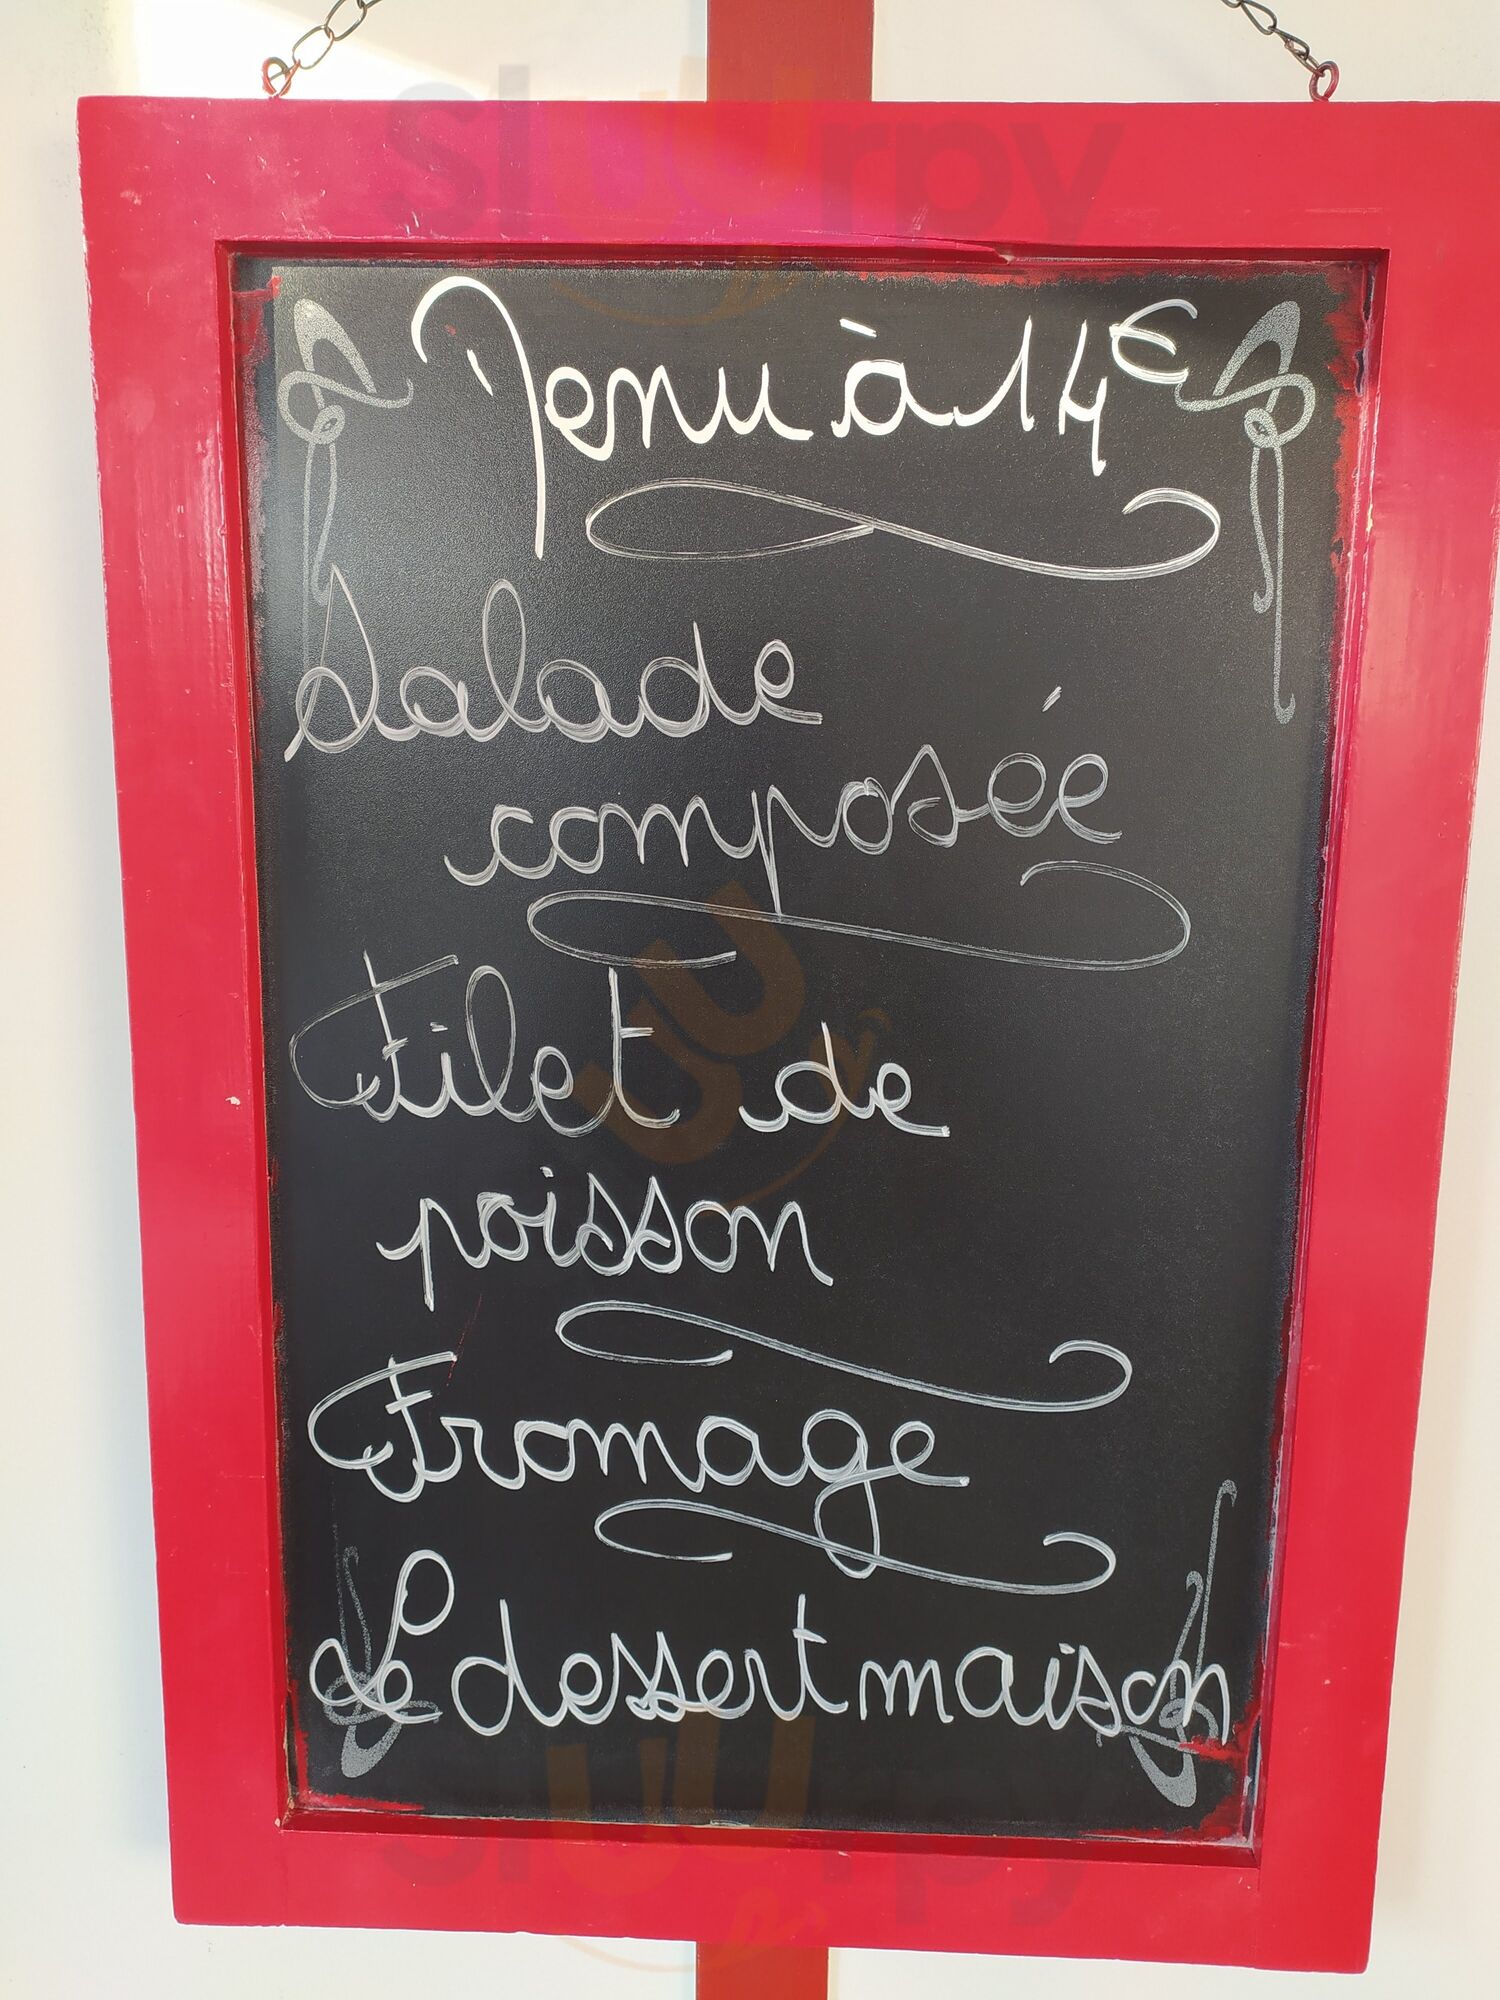 sluurpy
Menu à 14€
Salade
composée
Filet de
poisson
Fromage
Le dessert maison
sluurpy